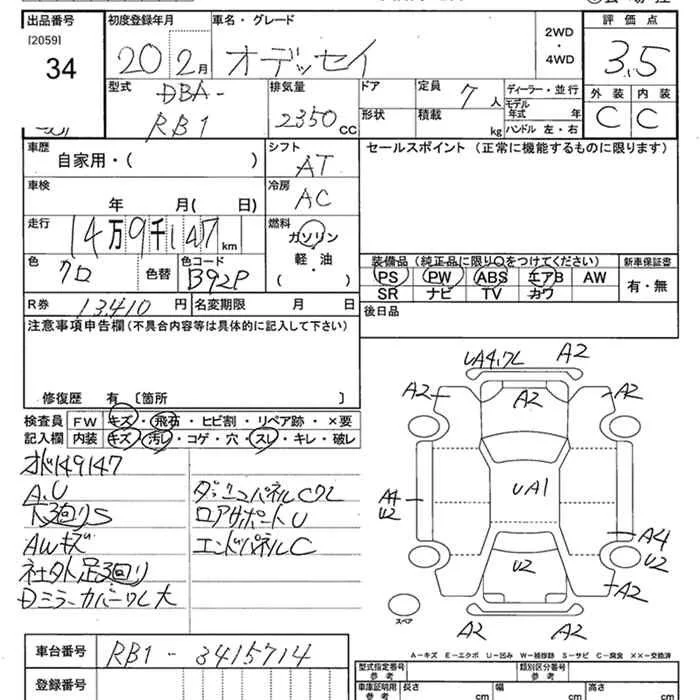 出品番号 初度登録年月 車名・グレード 評価点
[2059]
34
20 2月
オデッセイ
2WD
・
4WD
3.5
外装 内装
C C
型式 DBA-
RB1
排気量 2350 CC
ドア 定員 7 人
形状 積載 kg
ディーラー・並行
モデル年式 年
ハンドル 左・右
車歴 自家用・( )
シフト AT
セールスポイント (正常に機能するものに限ります)
車検 年 月( 日)
冷房 AC
走行 14万9千147 km
燃料 ガソリン
軽・油
( )
色 クロ 色替 色コード B92P
装備品 (純正品に限り○をつけてください) 新車保証書
PS PW ABS エアB AW 有・無
SR ナビ TV カワ
R券 13,410 円 名変期限 月 日
後日品
注意事項申告欄(不具合内容等は具体的に記入して下さい)
修復歴 有 〔箇所 〕
検査員 FW キズ・飛石・ヒビ割・リペア跡・×要
記入欄 内装 キズ・汚レ・コゲ・穴・スレ・キレ・破レ
オド149147
A,U
下3回りS
AWキズ
社外足3回り
Dミラーカバーワレ大
ダッシュパネルCワレ
ロアサポートU
エンドパネルC
UA4,フL A2
A2 A2 A2
A4
U2
UA1
A4
U2
U2
A2
A2 A2
スペア
A-キズ E-エクボ U-凹み W-補修跡 S-サビ C-腐食 XX-交換済
車台番号 RB1-3415714
登録番号
型式指定番号 参考 類別区分番号 参考
車庫証明用 参考 長さ cm 幅 cm 高さ cm